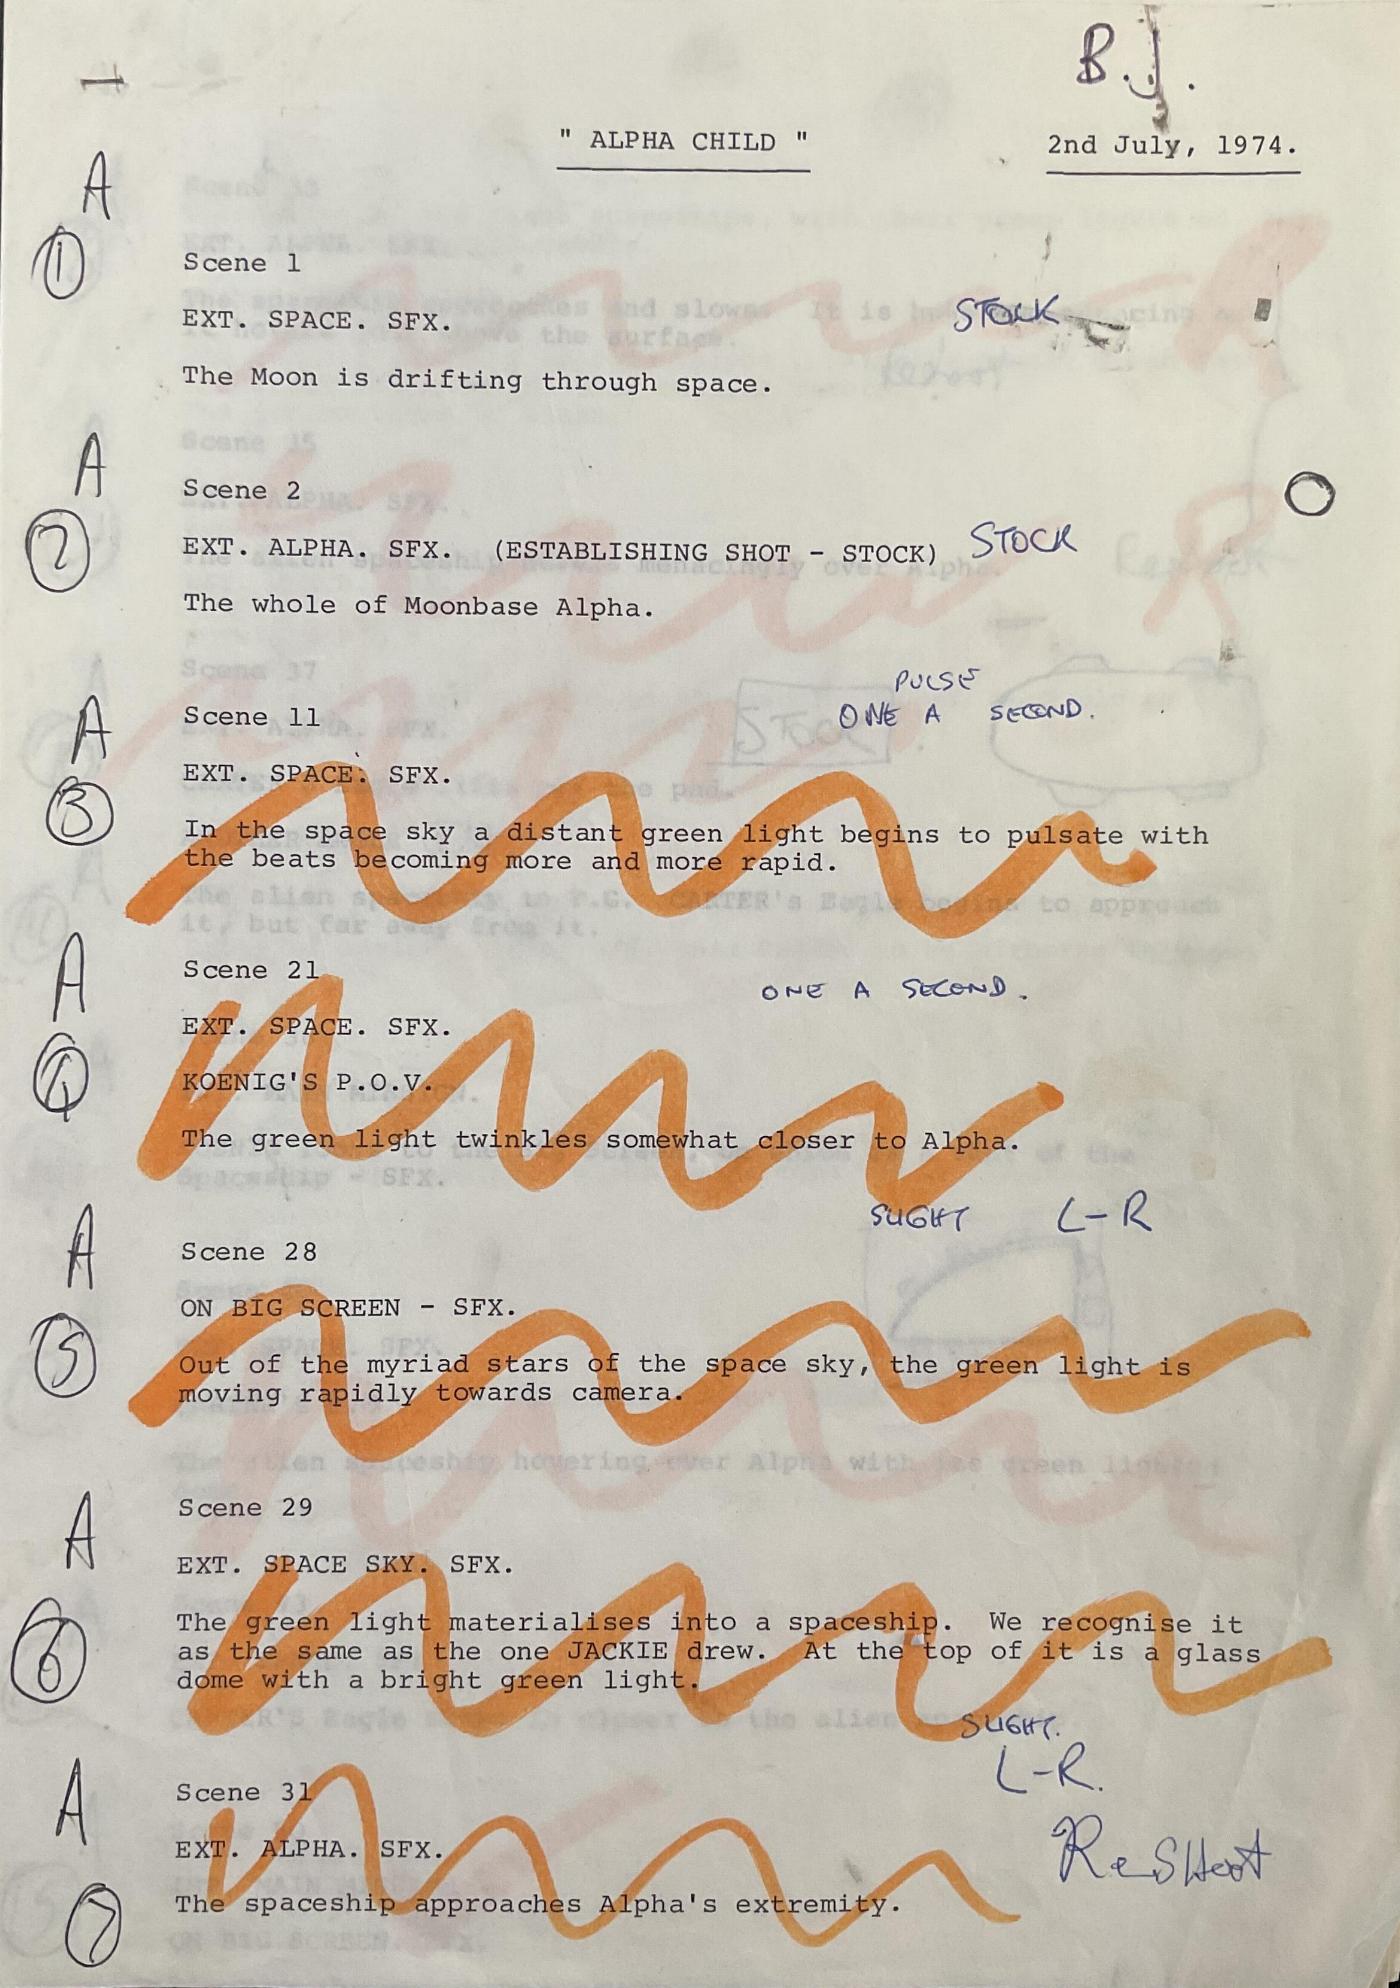 B.J.
" ALPHA CHILD "
2nd July, 1974.
A
1
Scene 1
EXT. SPACE. SFX.
STOCK
The Moon is drifting through space.
A
2
Scene 2
EXT. ALPHA. SFX. (ESTABLISHING SHOT - STOCK)
STOCK
The whole of Moonbase Alpha.
PULSE
ONE A SECOND.
A
3
Scene 11
EXT. SPACE. SFX.
In the space sky a distant green light begins to pulsate with
the beats becoming more and more rapid.
A
4
Scene 21
ONE A SECOND.
EXT. SPACE. SFX.
KOENIG'S P.O.V.
The green light twinkles somewhat closer to Alpha.
SLIGHT L-R
A
5
Scene 28
ON BIG SCREEN - SFX.
Out of the myriad stars of the space sky, the green light is
moving rapidly towards camera.
A
6
Scene 29
EXT. SPACE SKY. SFX.
The green light materialises into a spaceship. We recognise it
as the same as the one JACKIE drew. At the top of it is a glass
dome with a bright green light.
SLIGHT.
L-R.
A
7
Scene 31
EXT. ALPHA. SFX.
ReSHoot
The spaceship approaches Alpha's extremity.